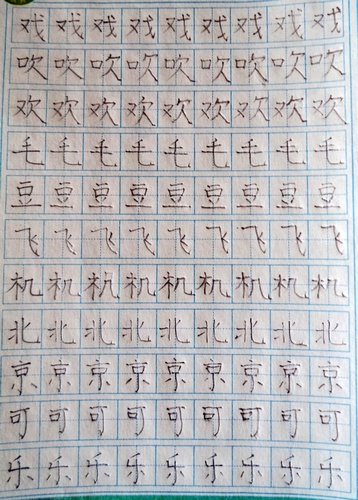 戏戏戏戏戏戏戏戏戏
吹吹吹吹吹吹吹吹吹
欢欢欢欢欢欢欢欢欢
毛毛毛毛毛毛毛毛毛
豆豆豆豆豆豆豆豆豆
飞飞飞飞飞飞飞飞飞
机机机机机机机机机
北北北北北北北北北
京京京京京京京京京
可可可可可可可可可
乐乐乐乐乐乐乐乐乐